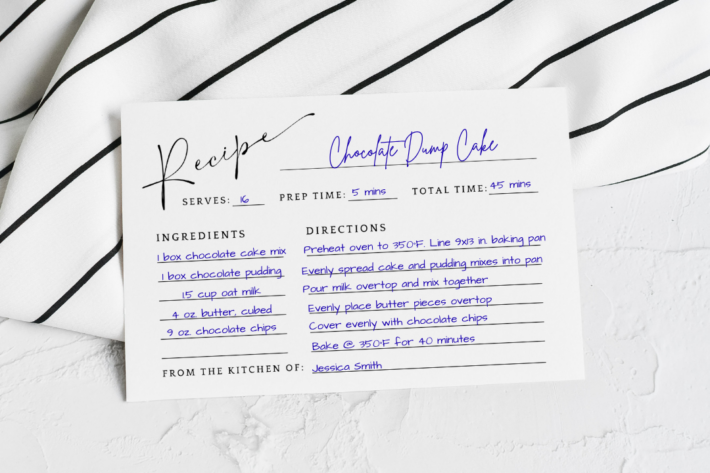 Recipe
Chocolate Dump Cake
SERVES: 16 PREP TIME: 5 mins TOTAL TIME: 45 mins
INGREDIENTS
1 box chocolate cake mix
1 box chocolate pudding
1.5 cup oat milk
4 oz butter, cubed
9 oz chocolate chips
DIRECTIONS
Preheat oven to 350°F. Line 9x13 in baking pan
Evenly spread cake and pudding mixes into pan
Pour milk overtop and mix together
Evenly place butter pieces overtop
Cover evenly with chocolate chips
Bake @ 350°F for 40 minutes
FROM THE KITCHEN OF: Jessica Smith